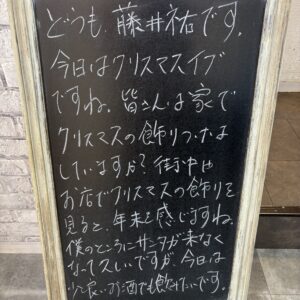 どうも、藤井祐です。
今日はクリスマスイブ
ですね。皆さんは家で
クリスマスの飾りつけは
していますか？街中や
お店でクリスマスの飾りを
見ると、年末を感じますね。
僕のところにサンタが来なく
なって久しいですが、今日は
少し良いお酒でも飲みたいです。